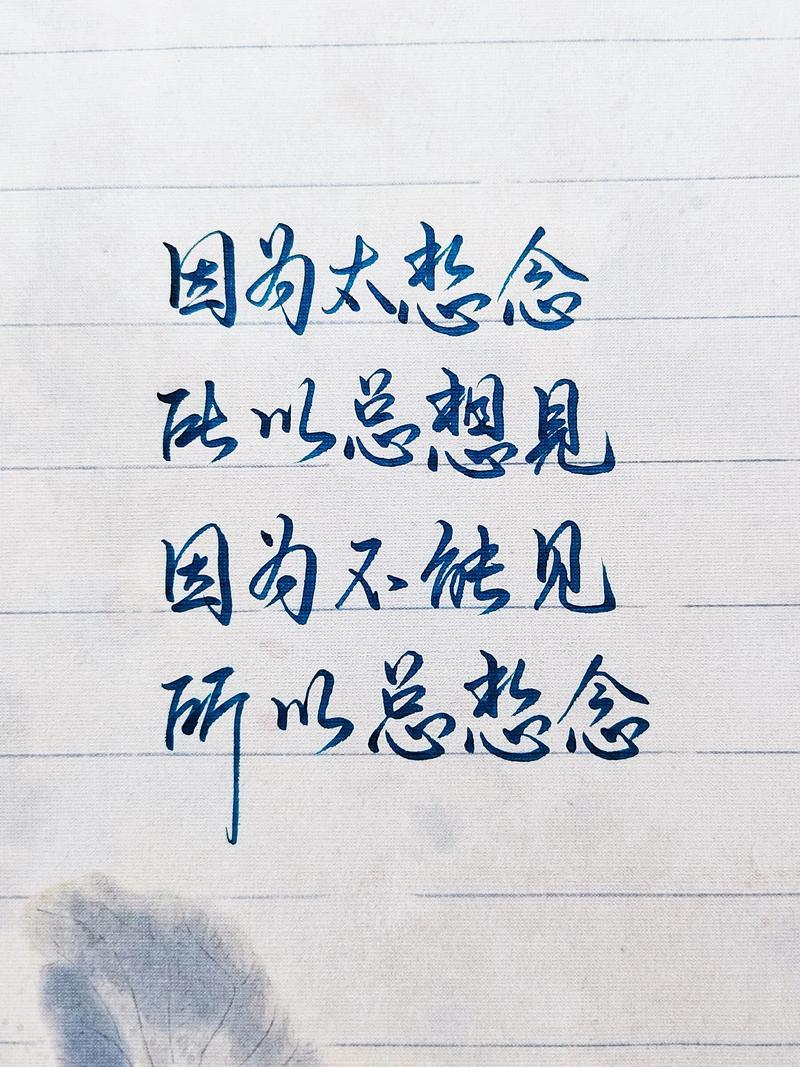 因为太想念
所以总想见
因为不能见
所以总想念